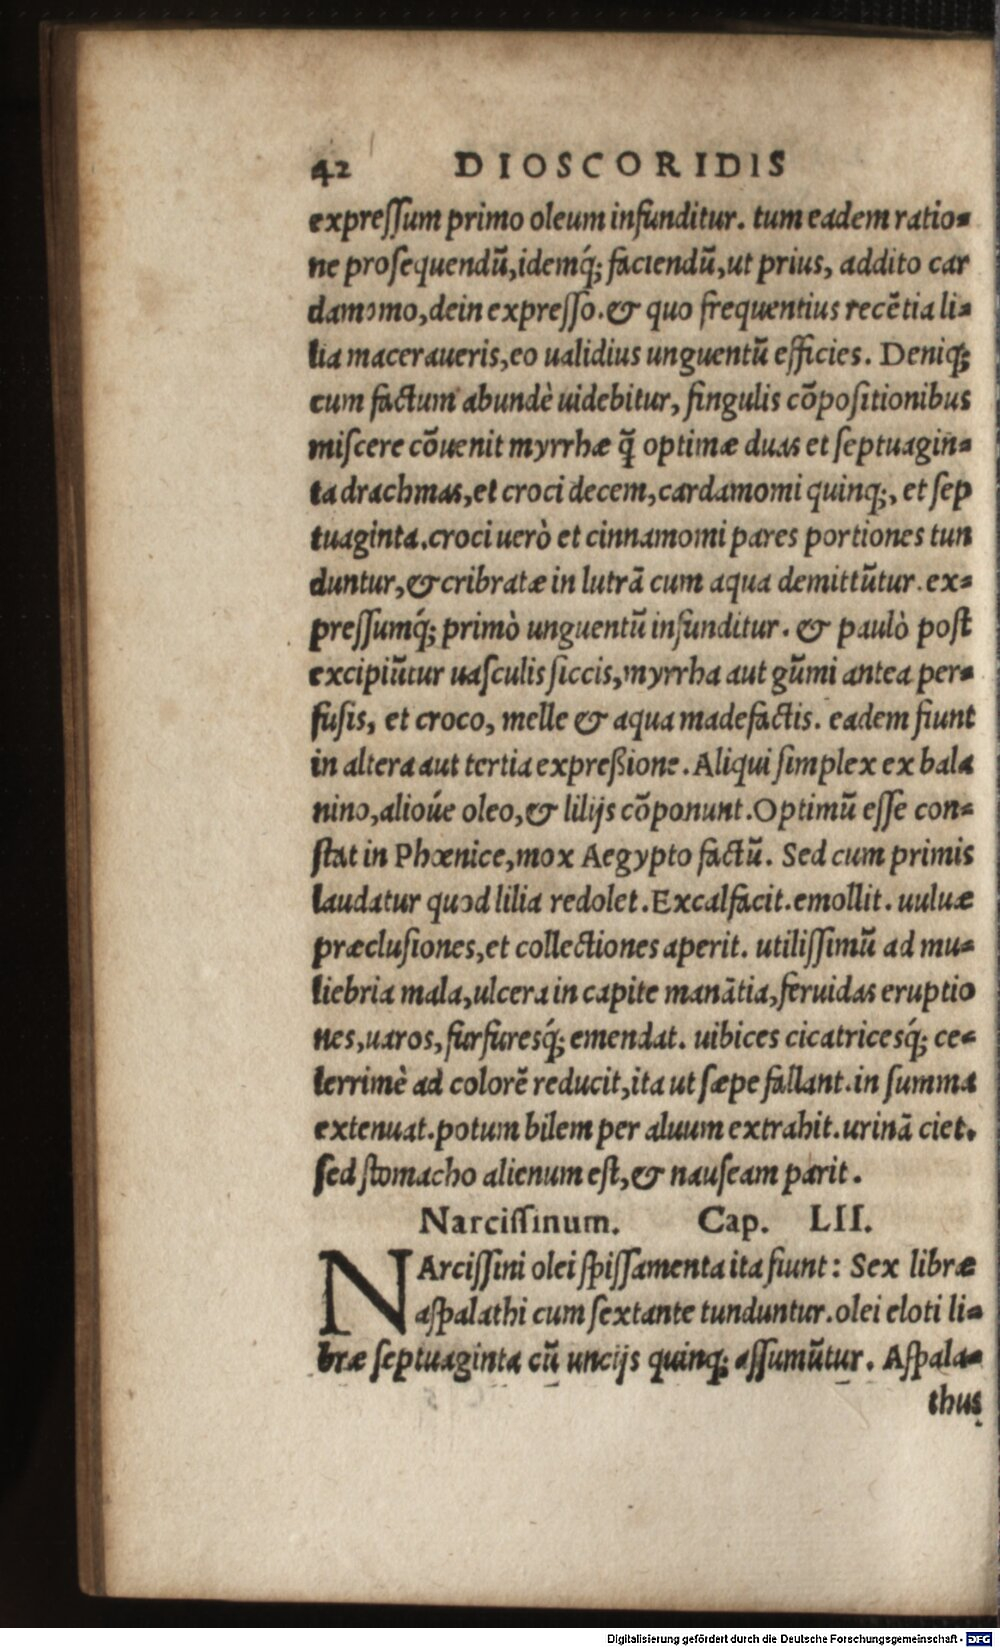 42 DIOSCORIDIS
expreſſum primo oleum infunditur. tum eadem ratio-
ne proſequendū, idemq́; faciendū, ut prius, addito car
damomo, dein expreſſo. & quo frequentius recētia li-
lia maceraueris, eo ualidius unguentū efficies. Deniq;
cum factum abundè uidebitur, ſingulis cōpoſitionibus
miſcere cōuenit myrrhæ q̄ optimæ duas et ſeptuagin-
ta drachmas, et croci decem, cardamomi quinq;, et ſep
tuaginta. croci uerò et cinnamomi pares portiones tun
duntur, & cribratæ in lutrā cum aqua demittūtur. ex-
preſſumq́; primò unguentū infunditur. & paulò poſt
excipiūtur uaſculis ſiccis, myrrha aut gūmi antea per-
fuſis, et croco, melle & aqua madefactis. eadem fiunt
in altera aut tertia expreßione. Aliqui ſimplex ex bala
nino, alioúe oleo, & lilijs cōponunt. Optimū eſſe con-
ſtat in Phœnice, mox Aegypto factū. Sed cum primis
laudatur quod lilia redolet. Excalfacit. emollit. uuluæ
præcluſiones, et collectiones aperit. utiliſſimū ad mu-
liebria mala, ulcera in capite manātia, feruidas eruptio
nes, uaros, furfuresq́; emendat. uibices cicatricesq́; ce-
lerrimè ad colorē reducit, ita ut ſæpe fallant. in ſumma
extenuat. potum bilem per aluum extrahit. urinā ciet.
ſed ſtomacho alienum eſt, & nauſeam parit.
Narciſſinum. Cap. LII.
NArciſſini olei ſpiſſamenta ita fiunt: Sex libræ
aſpalathi cum ſextante tunduntur. olei eloti li-
bræ ſeptuaginta cū uncijs quinq; aſſumūtur. Aſpala-
thus
Digitalisierung gefördert durch die Deutsche Forschungsgemeinschaft - DFG